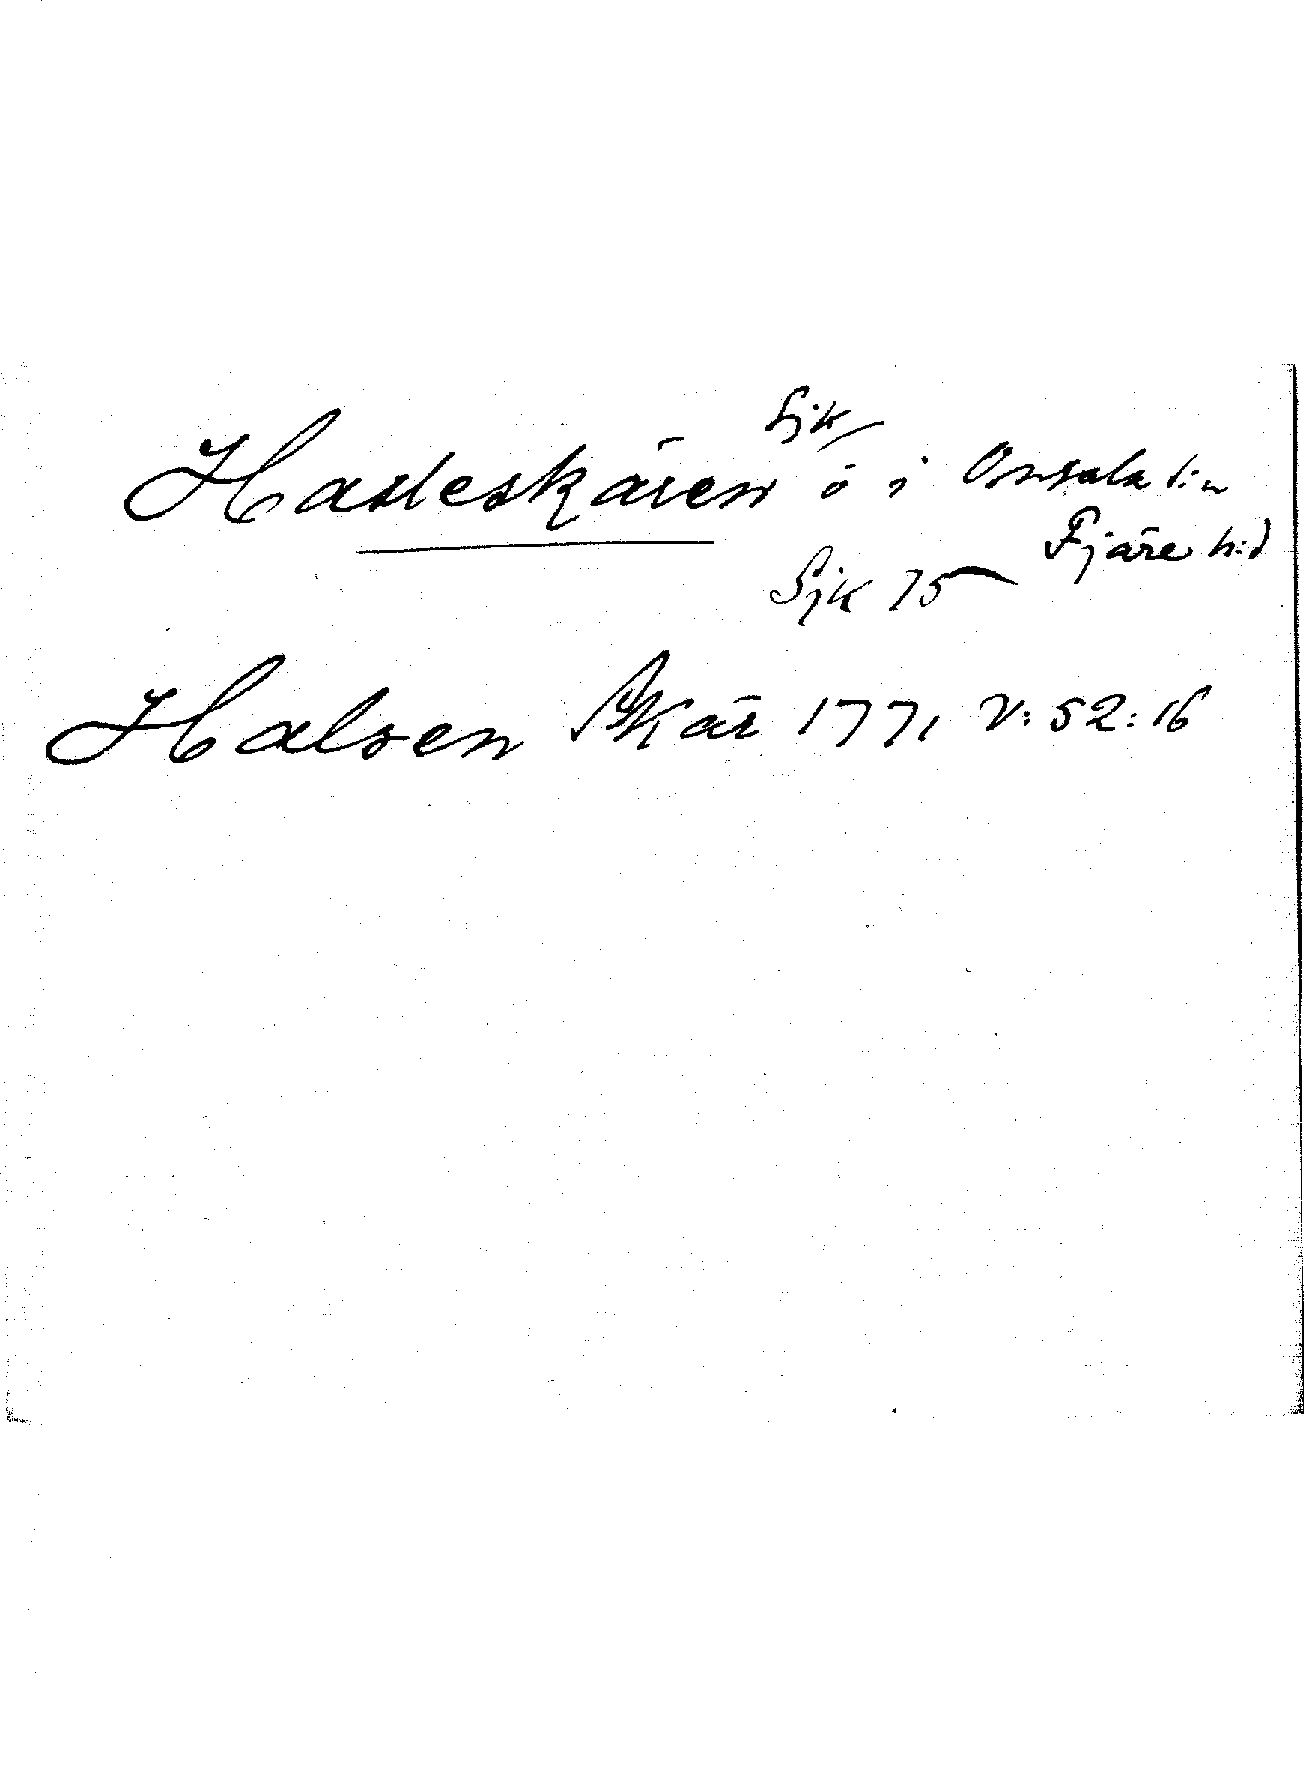 Sjk
Hadeskären ö i Onsala s:n
Fjäre h:d
Sjk 75
Halsen Skär 1771 V: 52: 16